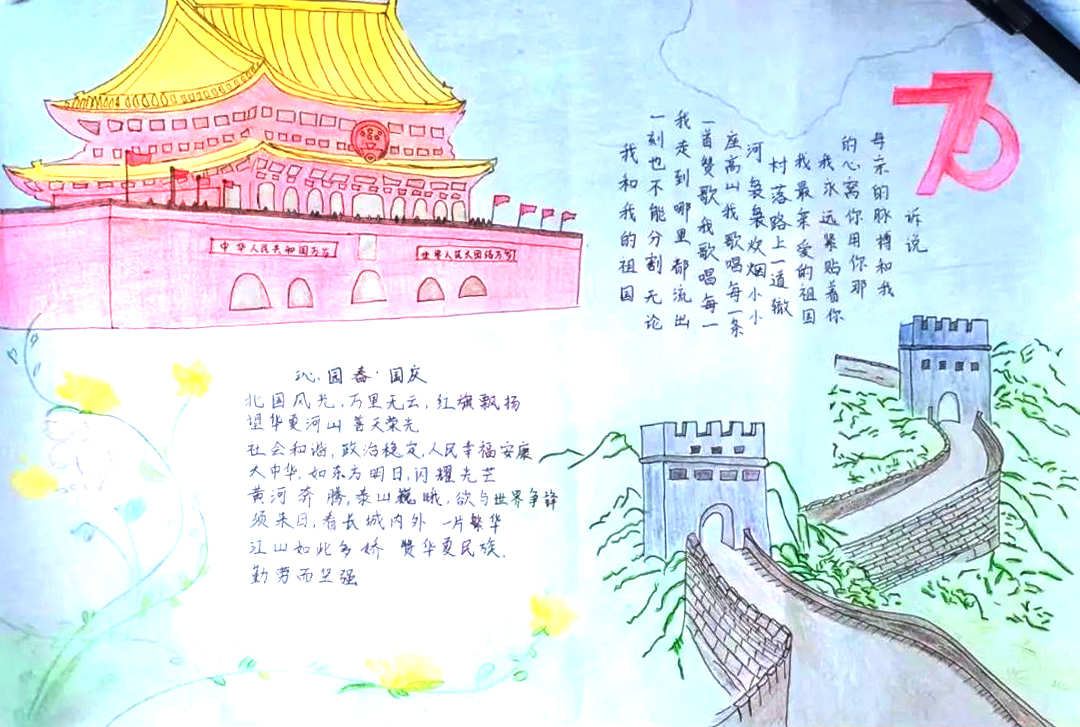 中华人民共和国万岁
世界人民大团结万岁
70
我和我的祖国
一刻也不能分割无论
我走到哪里都流出
一首赞歌我歌唱每一
座高山我歌唱每一条
河 袅袅炊烟小小
村落路上一道辙
我最亲爱的祖国
我永远紧贴着你
的心窝你用你那
母亲的脉搏和我
诉说
沁园春·国庆
北国风光,万里无云,红旗飘扬
望华夏河山 普天荣光
社会和谐,政治稳定,人民幸福安康
大中华,如东方明日,闪耀光芒
黄河奔腾,泰山巍峨,欲与世界争锋
须来日,看长城内外 一片繁华
江山如此多娇 赞华夏民族.
勤劳而坚强